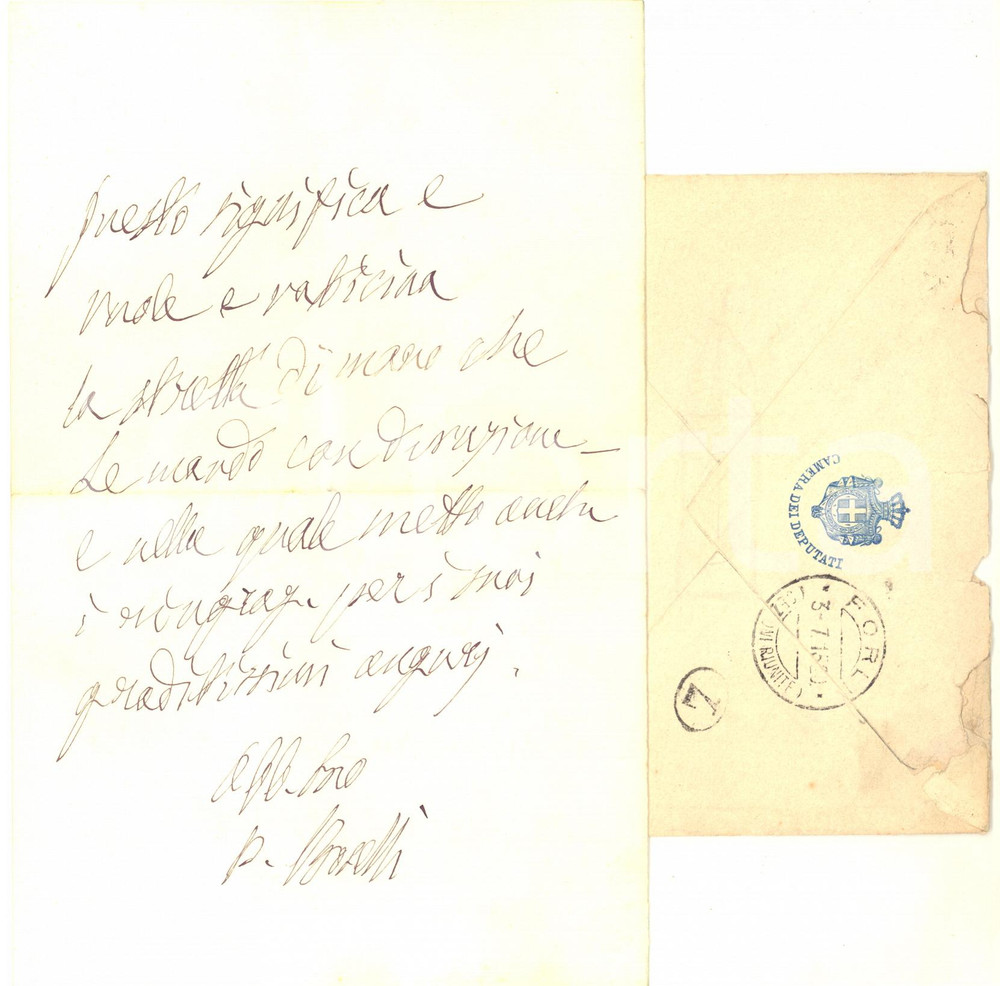 Questo significa e
vuole e vaticina
la stretta di mano che
Le mando con devozione —
e nella quale metto anche
i ringraz. per i suoi
graditissimi auguri.
aff. suo
P. Boselli
CAMERA DEI DEPUTATI
FORLI
3-7.16
Z